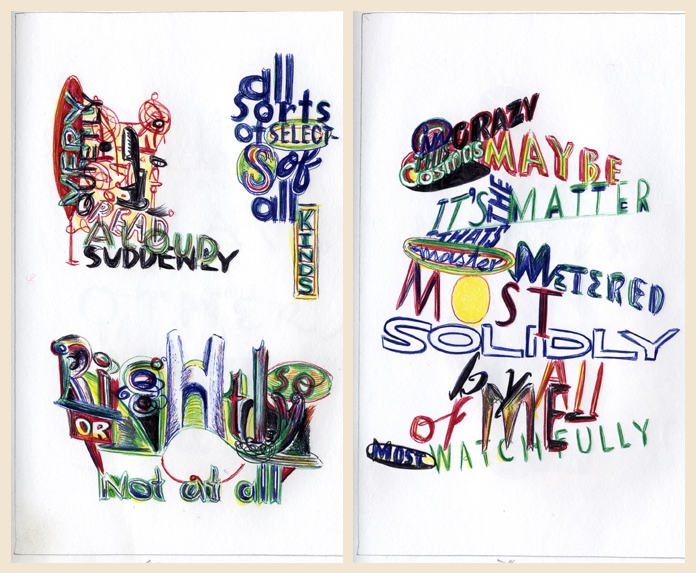 VERY
QUIETLY
READ
ALOUD
SUDDENLY
all
sorts
of SELECT-
S of
all
KINDS
RigHtly
so
OR
Not at all
CRAZY
THIS
Cosmos MAYBE
IT'S THE MATTER
THAT'S
master METERED
MOST
SOLIDLY
by All
of ME
MOST WATCHFULLY